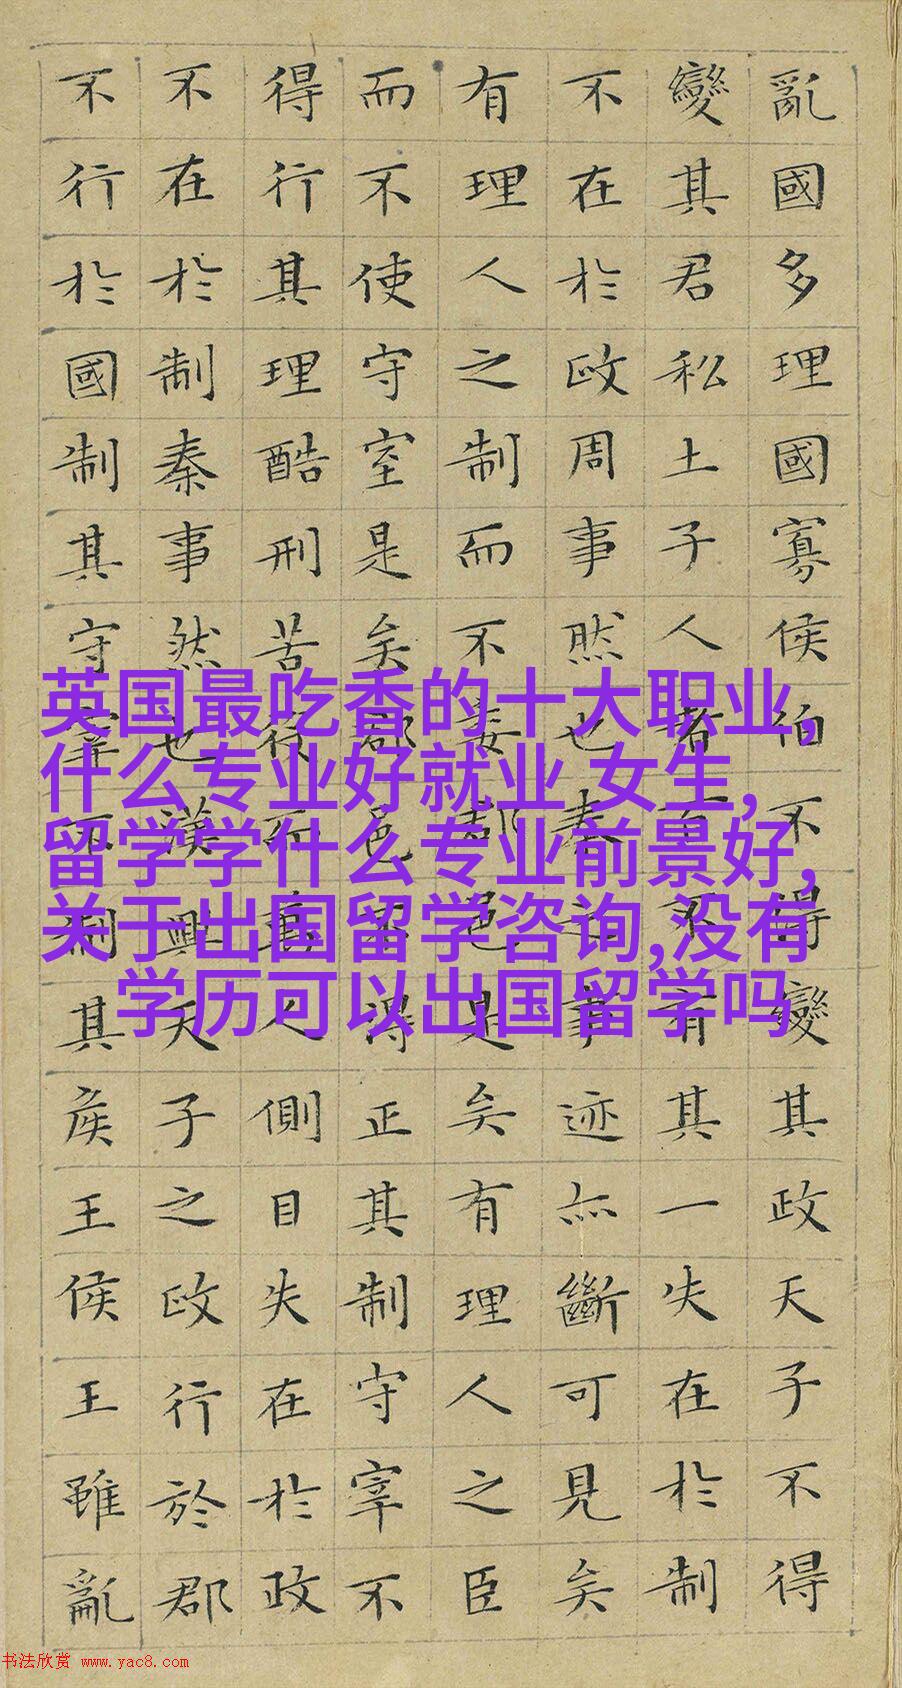 亂國多理國寡侯伯不得變其政天子不得
變其君私土子人者百不有其一失在於制
不在於政周事然也秦之事迹亦斷可見矣
有理人之制而不委郡邑是矣有理人之臣
而不使守宰是矣郡邑不得正其制守宰不
得行其理酷刑苦役而萬人側目失在於政
不在於制秦事然也漢興天子之政行於郡
不行於國制其守宰不制其侯王侯王雖亂
英国最吃香的十大职业,
什么专业好就业 女生,
留学学什么专业前景好,
关于出国留学咨询,没有
学历可以出国留学吗
书法欣赏 www.yac8.com